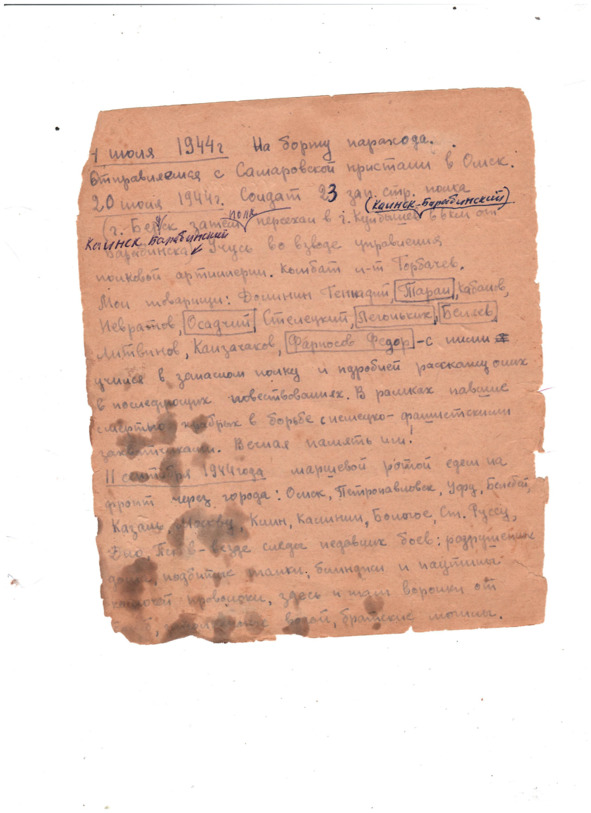 1 июля 1944г На борту парахода.
Отправляемся с Самаровской пристани в Омск.
20 июля 1944г. Солдат 23 зап. стр. полка
(Каинск-Барабинский)
(г. Бердск затем полк переехал в г. Куйбышев в км от
Каинск Барабинский
Барабинска Учусь во взводе управления
полковой артиллерии. Комбат л-т Горбачев.
Мои товарищи: Фомин Геннадий Таран, Кабанов,
Невратов, Осадчий Стелецкий, Легоньких, Беляев,
Литвинов, Канзачаков, Фарносов Федор - с ними
учился в запасном полку и подробней расскажу о них
в последующих повествованиях. В рамках павшие
смертью храбрых в борьбе с немецко-фашистскими
захватчиками. Вечная память им!
11 сентября 1944 года маршевой ротой едем на
фронт через города: Омск, Петропавловск, Уфу, Белебей,
Казань, Москву Клин, Калинин, Бологое, Ст. Руссу,
Псков - везде следы недавних боев: разрушенные
дома, подбитые танки. блиндажи и паутина
колючей проволоки, здесь и там воронки от
водой, братские могилы.